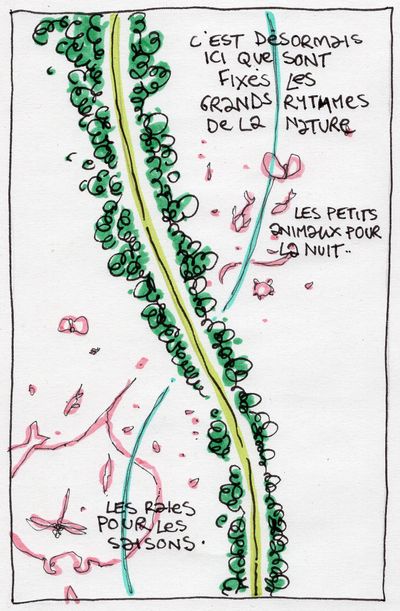 C'EST DÉSORMAIS
ICI QUE SONT
FIXÉS LES
GRANDS RYTHMES
DE LA NATURE
LES PETITS
ANIMAUX POUR
LA NUIT..
LES RAIES
POUR LES
SAISONS.